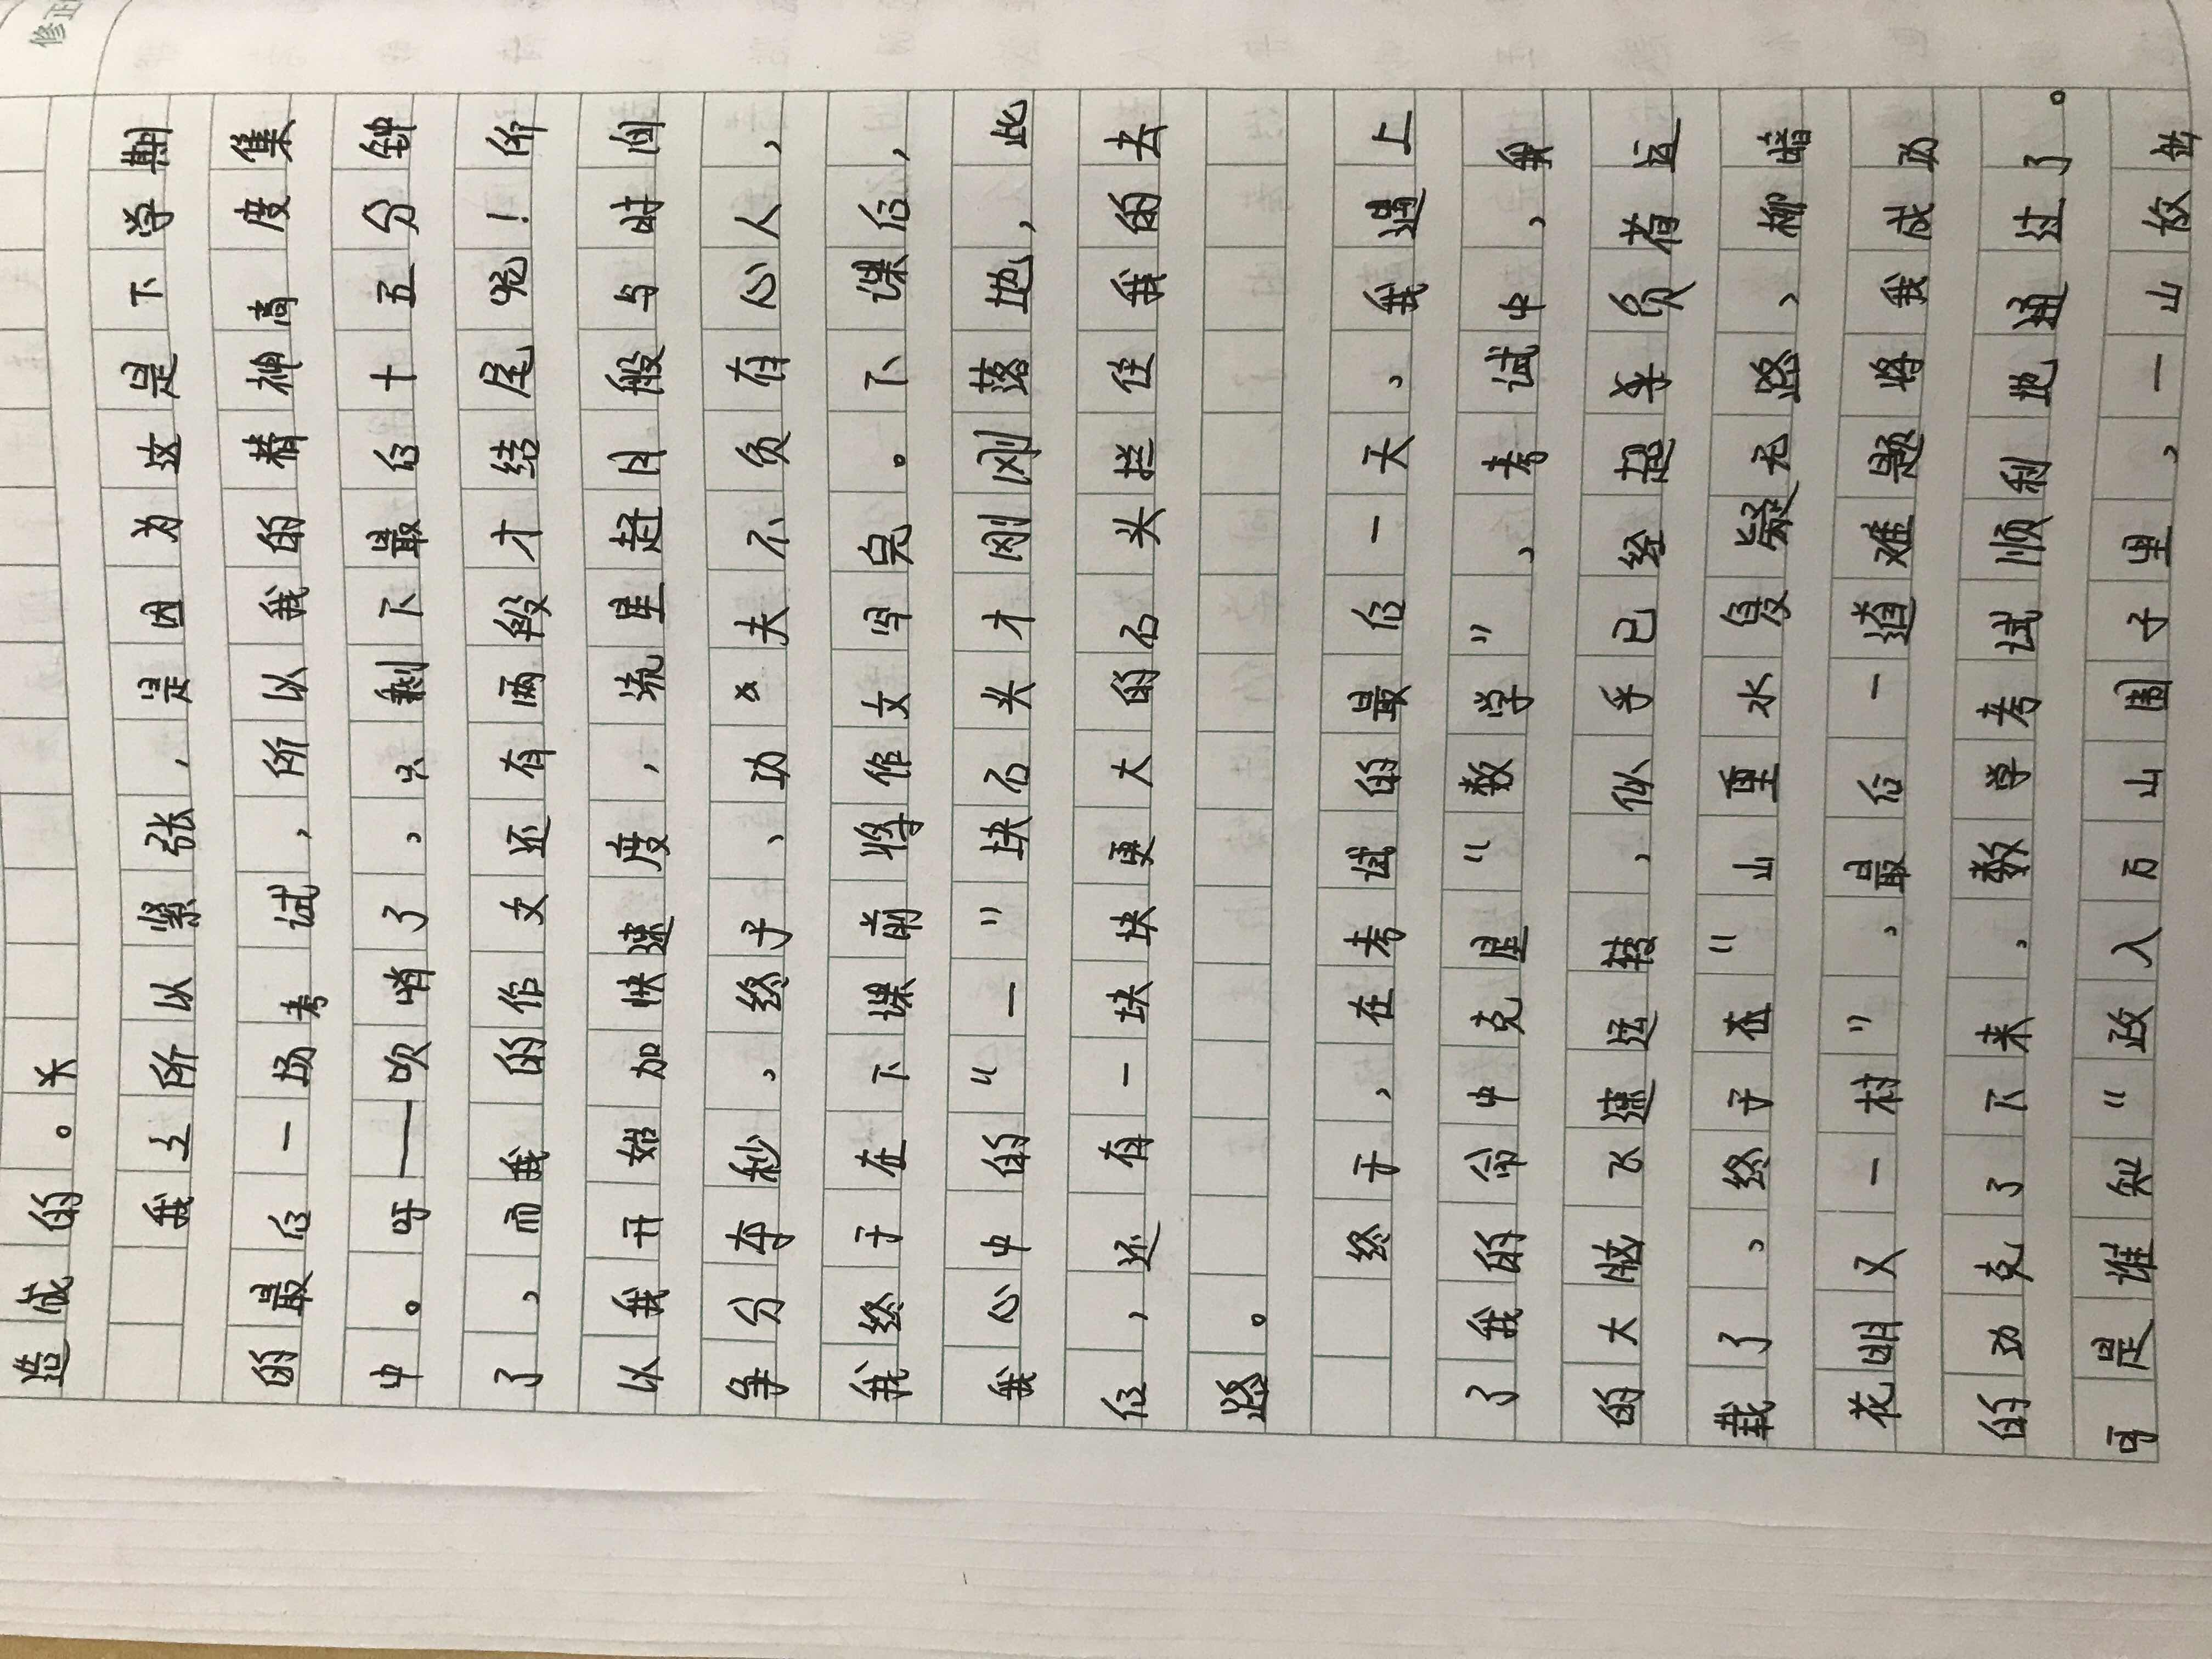 修正
造成的。关
我之所以紧张,是因为这是下学期
的最后一场考试,所以我的精神高度集
中。呼——吹哨了,只剩下最后十五分钟
了,而我的作文还有两段才结尾呢!所
以我开始加快速度,流星赶月般与时间
争分夺秒,终于,功夫不负有心人,
我终于在下课前将作文写完。下课后,
我心中的“一”块石头才刚刚落地,此
后,还有一块块更大的石头拦住我的去
路。
终于,在考试的最后一天,我遇上
了我的命中克星“数学”,考试中,我
的大脑飞速运转,似乎已经超乎负荷运
载了,终于在“山重水复疑无路,柳暗
花明又一村”,最后一道难题将我成功
的功克了下来,数学考试顺利地通过了。
可是谁知“政入万山围子里,一山放出